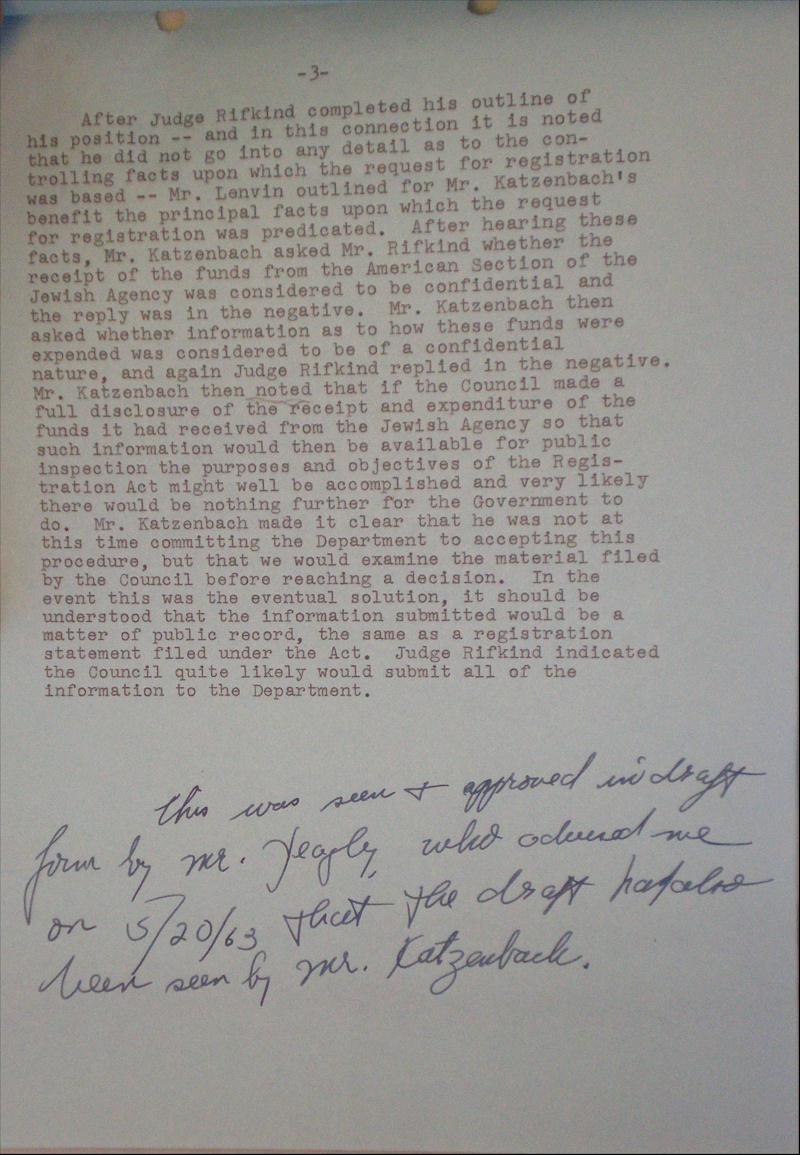 -3-
After Judge Rifkind completed his outline of
his position -- and in this connection it is noted
that he did not go into any detail as to the con-
trolling facts upon which the request for registration
was based -- Mr. Lenvin outlined for Mr. Katzenbach's
benefit the principal facts upon which the request
for registration was predicated. After hearing these
facts, Mr. Katzenbach asked Mr. Rifkind whether the
receipt of the funds from the American Section of the
Jewish Agency was considered to be confidential and
the reply was in the negative. Mr. Katzenbach then
asked whether information as to how these funds were
expended was considered to be of a confidential
nature, and again Judge Rifkind replied in the negative.
Mr. Katzenbach then noted that if the Council made a
full disclosure of the receipt and expenditure of the
funds it had received from the Jewish Agency so that
such information would then be available for public
inspection the purposes and objectives of the Regis-
tration Act might well be accomplished and very likely
there would be nothing further for the Government to
do. Mr. Katzenbach made it clear that he was not at
this time committing the Department to accepting this
procedure, but that we would examine the material filed
by the Council before reaching a decision. In the
event this was the eventual solution, it should be
understood that the information submitted would be a
matter of public record, the same as a registration
statement filed under the Act. Judge Rifkind indicated
the Council quite likely would submit all of the
information to the Department.
This was seen + approved in draft
form by Mr. Yeagley, who advised me
on 5/20/63 that the draft had also
been seen by Mr. Katzenbach.